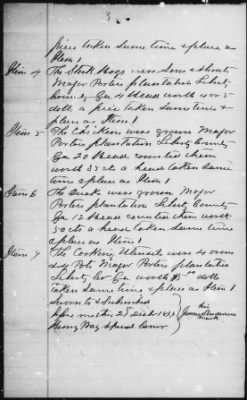 piece taken same time & place as
Item 1
Item 4 The Stock Hogs were Sows & Shoats
Major Porters plantation Liberty
County Ga 4 Head worth 4 or 5
dolls a piece taken same time &
place as Item 1
Item 5 The Chickens was grown Major
Porters plantation Liberty County
Ga 20 Head counted them
worth 25 cts a head taken same
time & place as Item 1
Item 6 The Ducks was grown Major
Porters plantation Liberty County
Ga 12 Head counted them worth
50 cts a head taken same time
& place as Item 1
Item 7 The Cooking Utensil was
Pots Major Porters plantation
Liberty Co Ga worth dolls
taken same time & place as Item 1
Sworn to & subscribed
before me this 25 1873
Henry Way Special Comr
his
mark